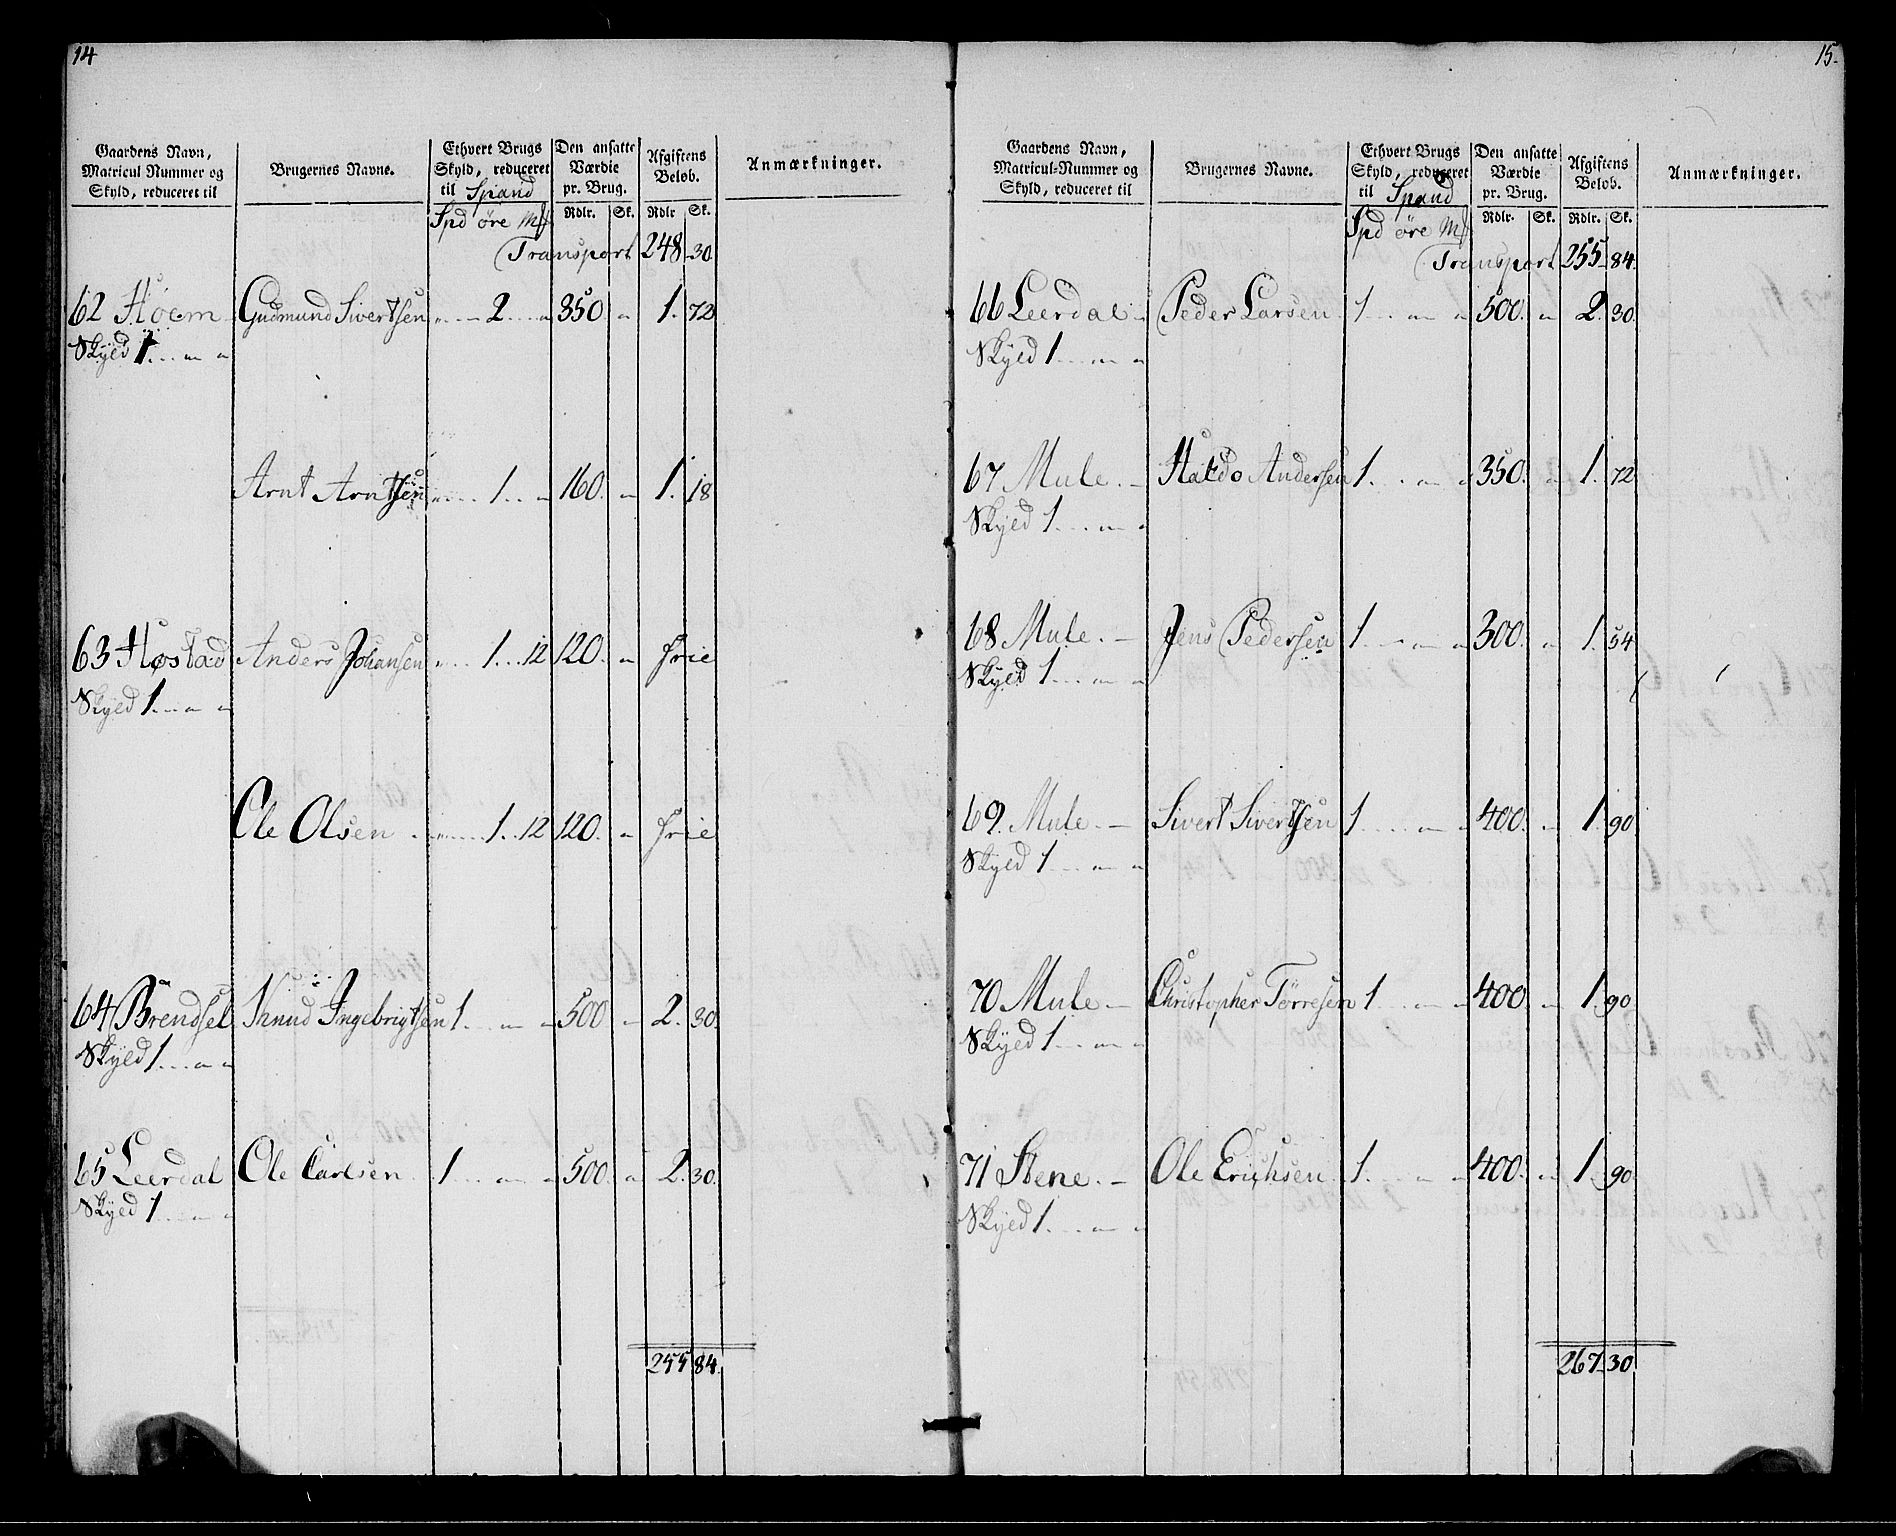 14
Gaardens Navn, Matricul Nummer og Skyld, reduceret til | Brugernes Navne. | Ethvert Brugs Skyld, reduceret til Spand | Den ansatte Værdie pr. Brug. | Afgiftens Beløb. | Anmærkninger.
Spd øre Mkl | Rdlr. | Sk. | Rdlr | Sk.
Transport 248 30
62 Høem Gudmund Sivertsen " - 2 . . " 350 " 1. 72
Skyld 1 . . " "
Arnt Arntsen " . . 1 . . " 160. " 1. 18
63 Høstad Anders Johansen " . . 1 . . 12 120. " frie
Skyld 1 . . " "
Ole Olsen . " . . 1 . . 12 120. " frie
64 Brendsel Knud Ingebrigtsen 1 . . " " 500 " 2. 30.
Skyld 1 . . " "
65 Leerdal Ole Carlsen 1 . . " " 500. " 2. 30.
Skyld 1 . . " "
255 84.
15.
Gaardens Navn, Matricul-Nummer og Skyld, reduceret til | Brugernes Navne. | Ethvert Brugs Skyld, reduceret til Spand | Den ansatte Værdie pr. Brug. | Afgiftens Beløb. | Anmærkninger.
Spd øre Mkl | Rdlr. | Sk. | Rdlr. | Sk.
Transport 255 84.
66 Leerdal Peder Larsen 1 . . " " 500. " 2. 30.
Skyld 1 . . " "
67 Mule. - Haldo Andersen 1 . . " " 350. " 1. 72
Skyld 1 . . " "
68 Mule. - Jens Pedersen 1 . . " " 300. " 1. 54
Skyld 1 . . " "
69. Mule. - Sivert Sivertsen 1 . . " " 400. " 1. 90
Skyld 1 . . " "
70 Mule - Christopher Tørresen 1 . . " " 400. " 1. 90
Skyld 1 . . " "
71 Stene. - Ole Erichsen 1 . . " " 400. " 1. 90
Skyld 1 . . " "
267 30